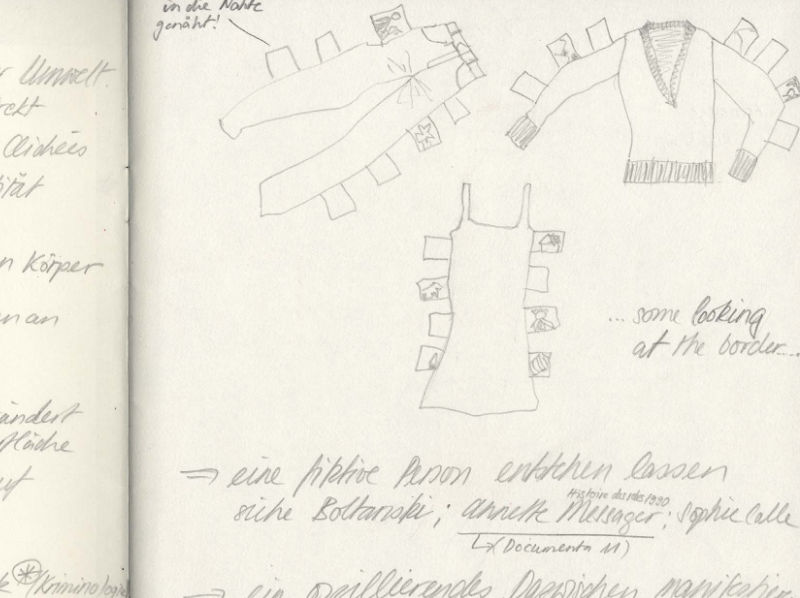 in die Nähte
genäht!
Umwelt.
Clichées
n Körper
n an
ändert
fläche
uf
Kriminologie
... some looking
at the border...
⇒ eine fiktive Person entstehen lassen
siehe Boltanski; Annette Messager; Sophie Calle
Histoire des robes 1990
(Documenta 11)
⇒ ein oszillierendes Dazwischen manifestier